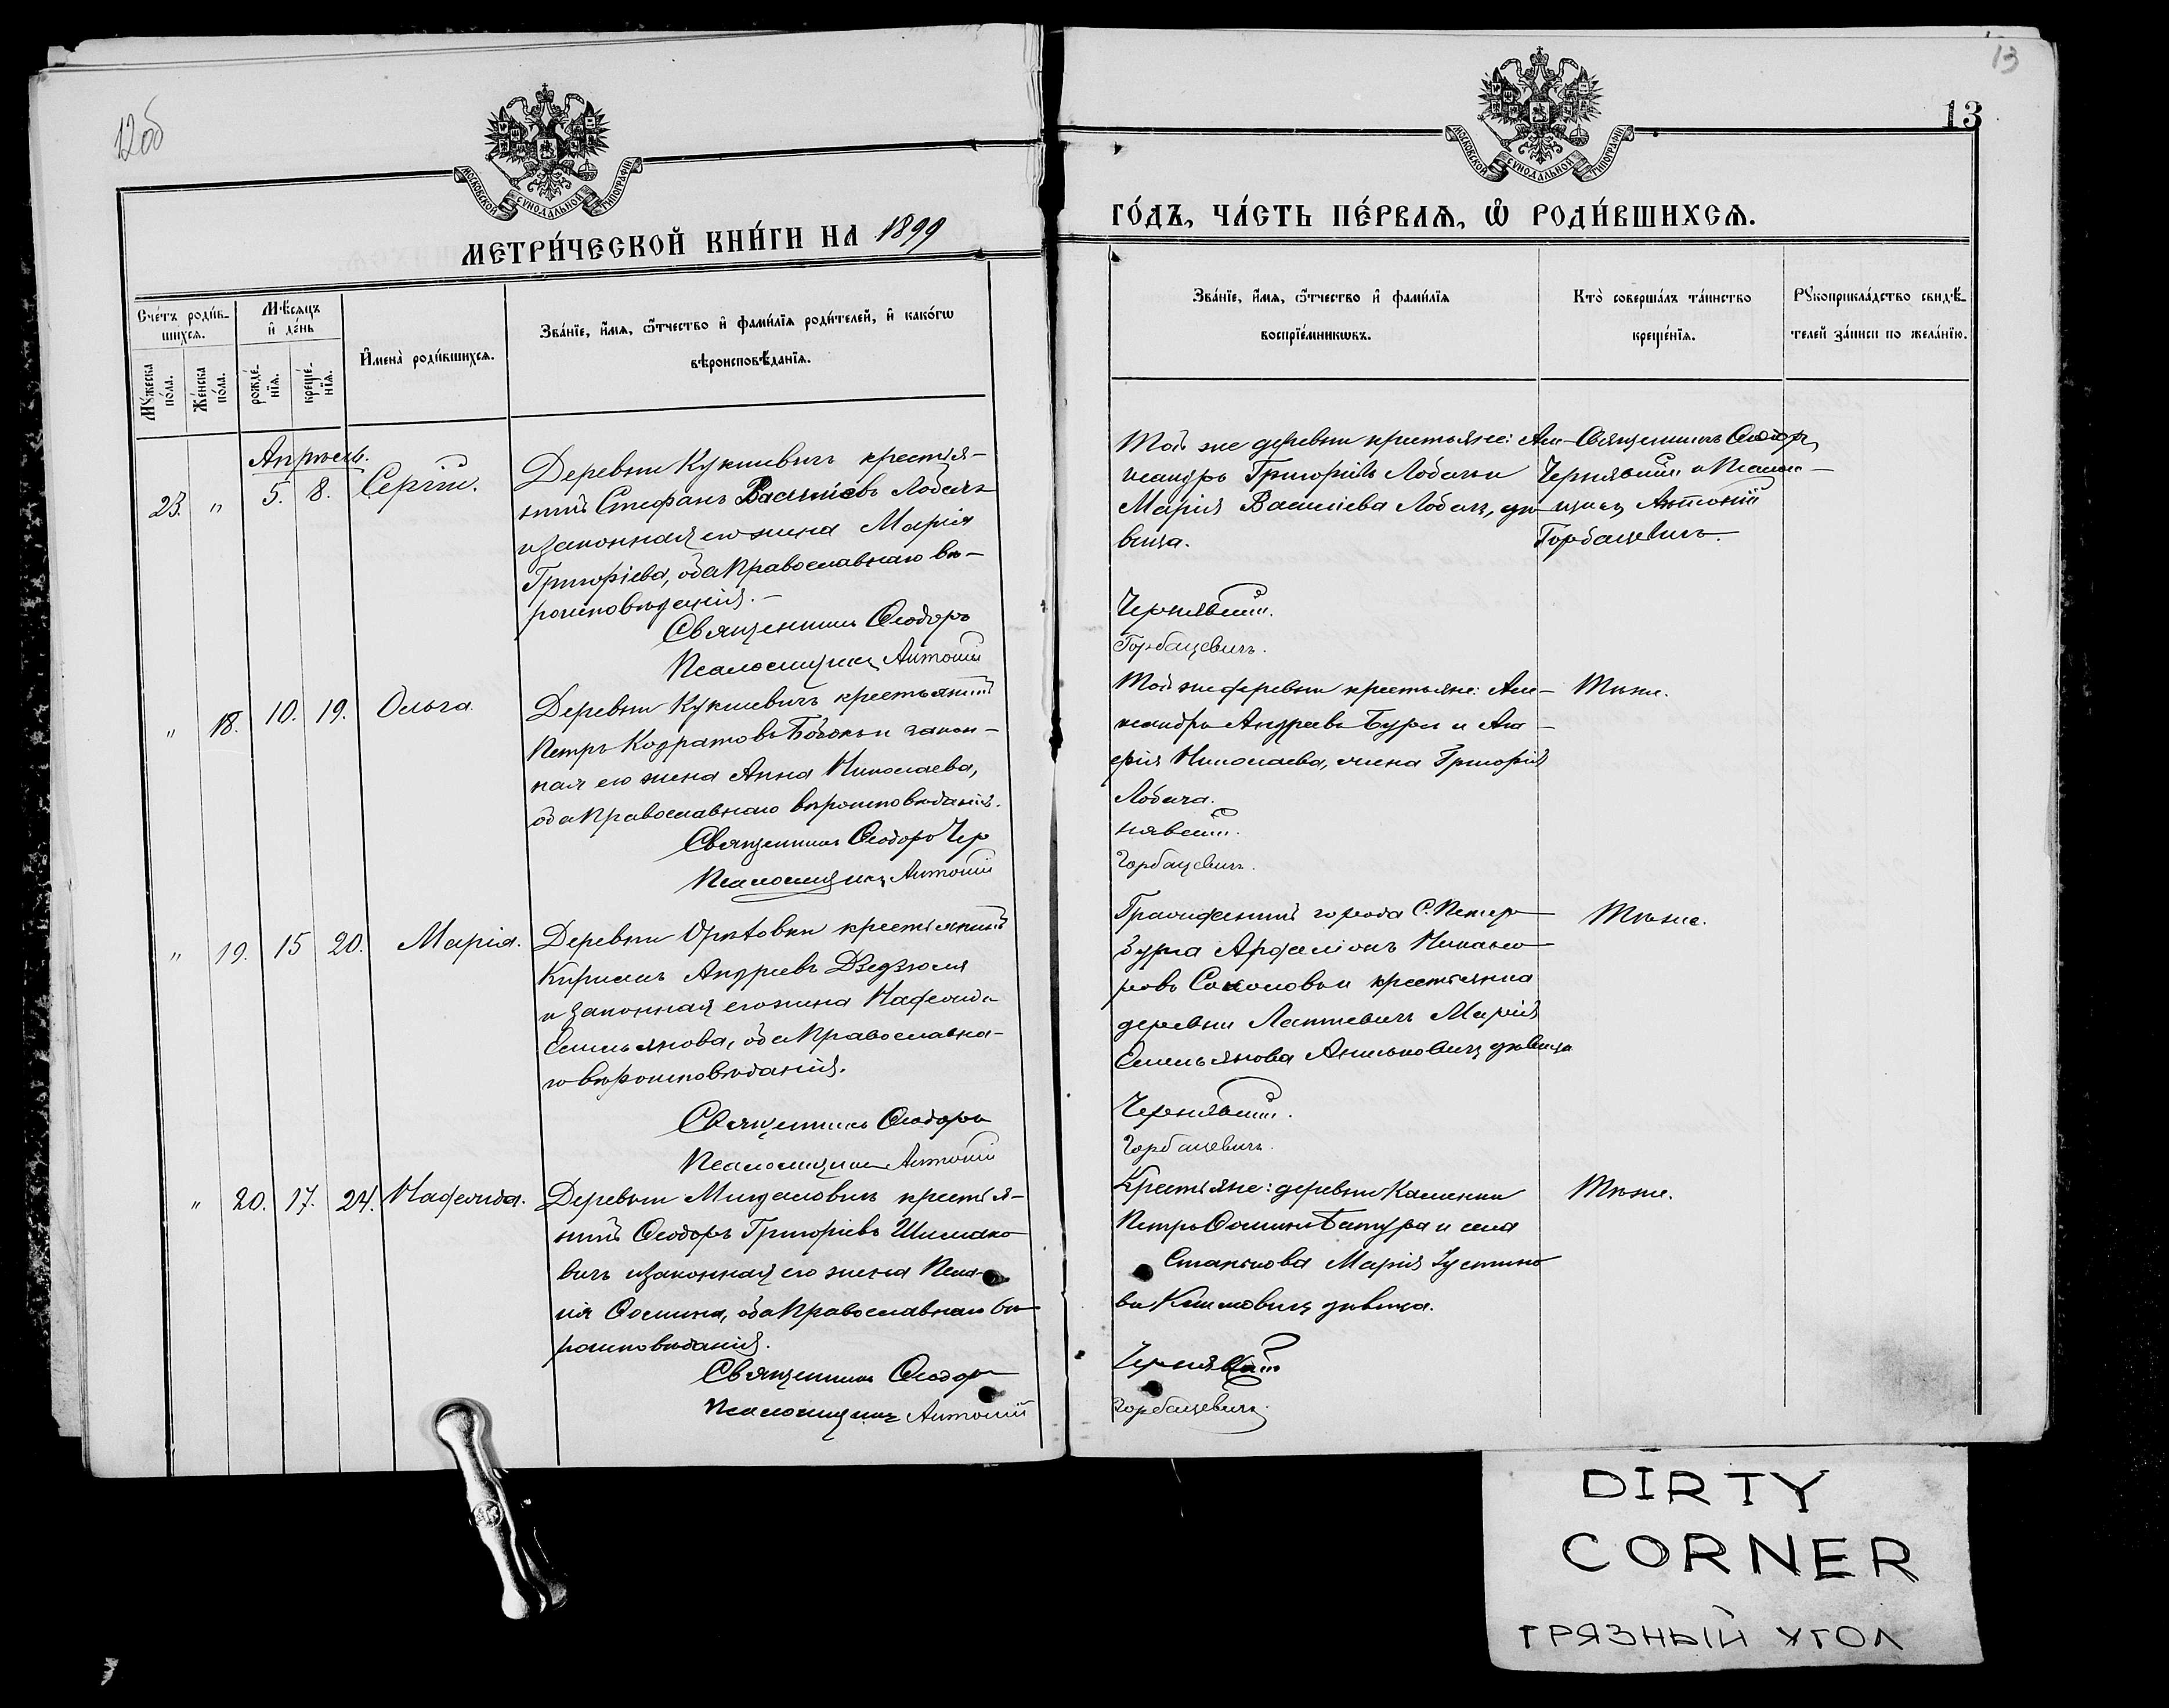 12об
МОСКОВСКОЙ СѴНОДАЛЬНОЙ ТИПОГРАФІИ
МЕТРИ́ЧЕСКОЙ КНИ́ГИ НА 1899
Сче́тъ роди́в-
шихся.
Мѣ́сяцъ
и҆ де́нь
Мꙋ́жеска
по́ла.
Же́нска
по́ла.
рожде́-
нїѧ.
креще́-
нїѧ.
И҆мена̀ роди́вшихсѧ.
Зва́нїе, и҆́мѧ, ѻ҆́тчество и҆ фами́лїѧ роди́телей, и҆ како́гѡ
вѣроисповѣ́данїѧ.
Апрѣль.
23. " 5. 8. Сергій.
Деревни Кукшевичъ крестья-
нинъ Стефанъ Васильевъ Лобачъ
и законная его жена Марія
Григоріева, оба Православнаго вѣ-
роисповѣданія.-
Священникъ Ѳеодоръ
Псаломщикъ Антоній
" 18. 10. 19. Ольга.
Деревни Кукшевичъ крестьянинъ
Петръ Кодратовъ и закон-
ная его жена Анна Николаева,
оба Православнаго вѣроисповѣданія.
Священникъ Ѳеодоръ Чер
Псаломщикъ Антоній
" 19. 15 20. Марія.
Деревни крестьянинъ
Кириллъ Андреевъ Дзедзюля
и законная его жена Надежда
Емельянова, оба Православна-
го вѣроисповѣданія.
Священникъ Ѳеодоръ
Псаломщикъ Антоній
" 20. 17. 24. Надежда.
Деревни крестья-
нинъ Ѳеодоръ Григоріевъ Шимано
вичъ и законная его жена Пела-
гія Ѳомина, оба Православнаго вѣ-
роисповѣданія.
Священникъ Ѳеодоръ
Псаломщикъ Антоній
13
13
МОСКОВСКОЙ СѴНОДАЛЬНОЙ ТИПОГРАФІИ
ГО́ДЪ, ЧА́СТЬ ПЕ́РВАѦ, Ѡ҆ РОДИ́ВШИХСѦ.
Зва́нїе, и҆́мѧ, ѻ҆́тчество и҆ фами́лїѧ
воспрїе́мникѡвъ.
Кто̀ соверша́лъ та́инство
креще́нїѧ.
Рꙋкоприкла́дство свидѣ́-
телей за́писи по жела́нїю.
Той же деревни крестьяне: Але-
ксандръ Григорьевъ Лобачъ и
Марія Васильева Лобачъ, дѣ-
вица.
Священникъ Ѳеодоръ
Чернявскій и Псалом-
щикъ Антоній
Горбацевичъ.
Чернявскій.
Горбацевичъ.
Той же деревни крестьяне: Але-
ксандръ Андреевъ и
Николаева, жена Григорія
Лобача.
Тѣже.
нявскій.
Горбацевичъ.
города С. Петер-
бурга Никано
ровъ Соколовъ и крестьянка
деревни Лаппевичъ Марія
Емельянова дѣвица
Тѣже.
Чернявскій.
Горбацевичъ.
Крестьяне: деревни Каменки
Петръ Ѳоминъ Батура и села
Станькова Марія Іустино
ва дѣвица.
Тѣже.
Чернявскій
Горбацевичъ.
DIRTY
CORNER
ГРЯЗНЫЙ УГОЛ